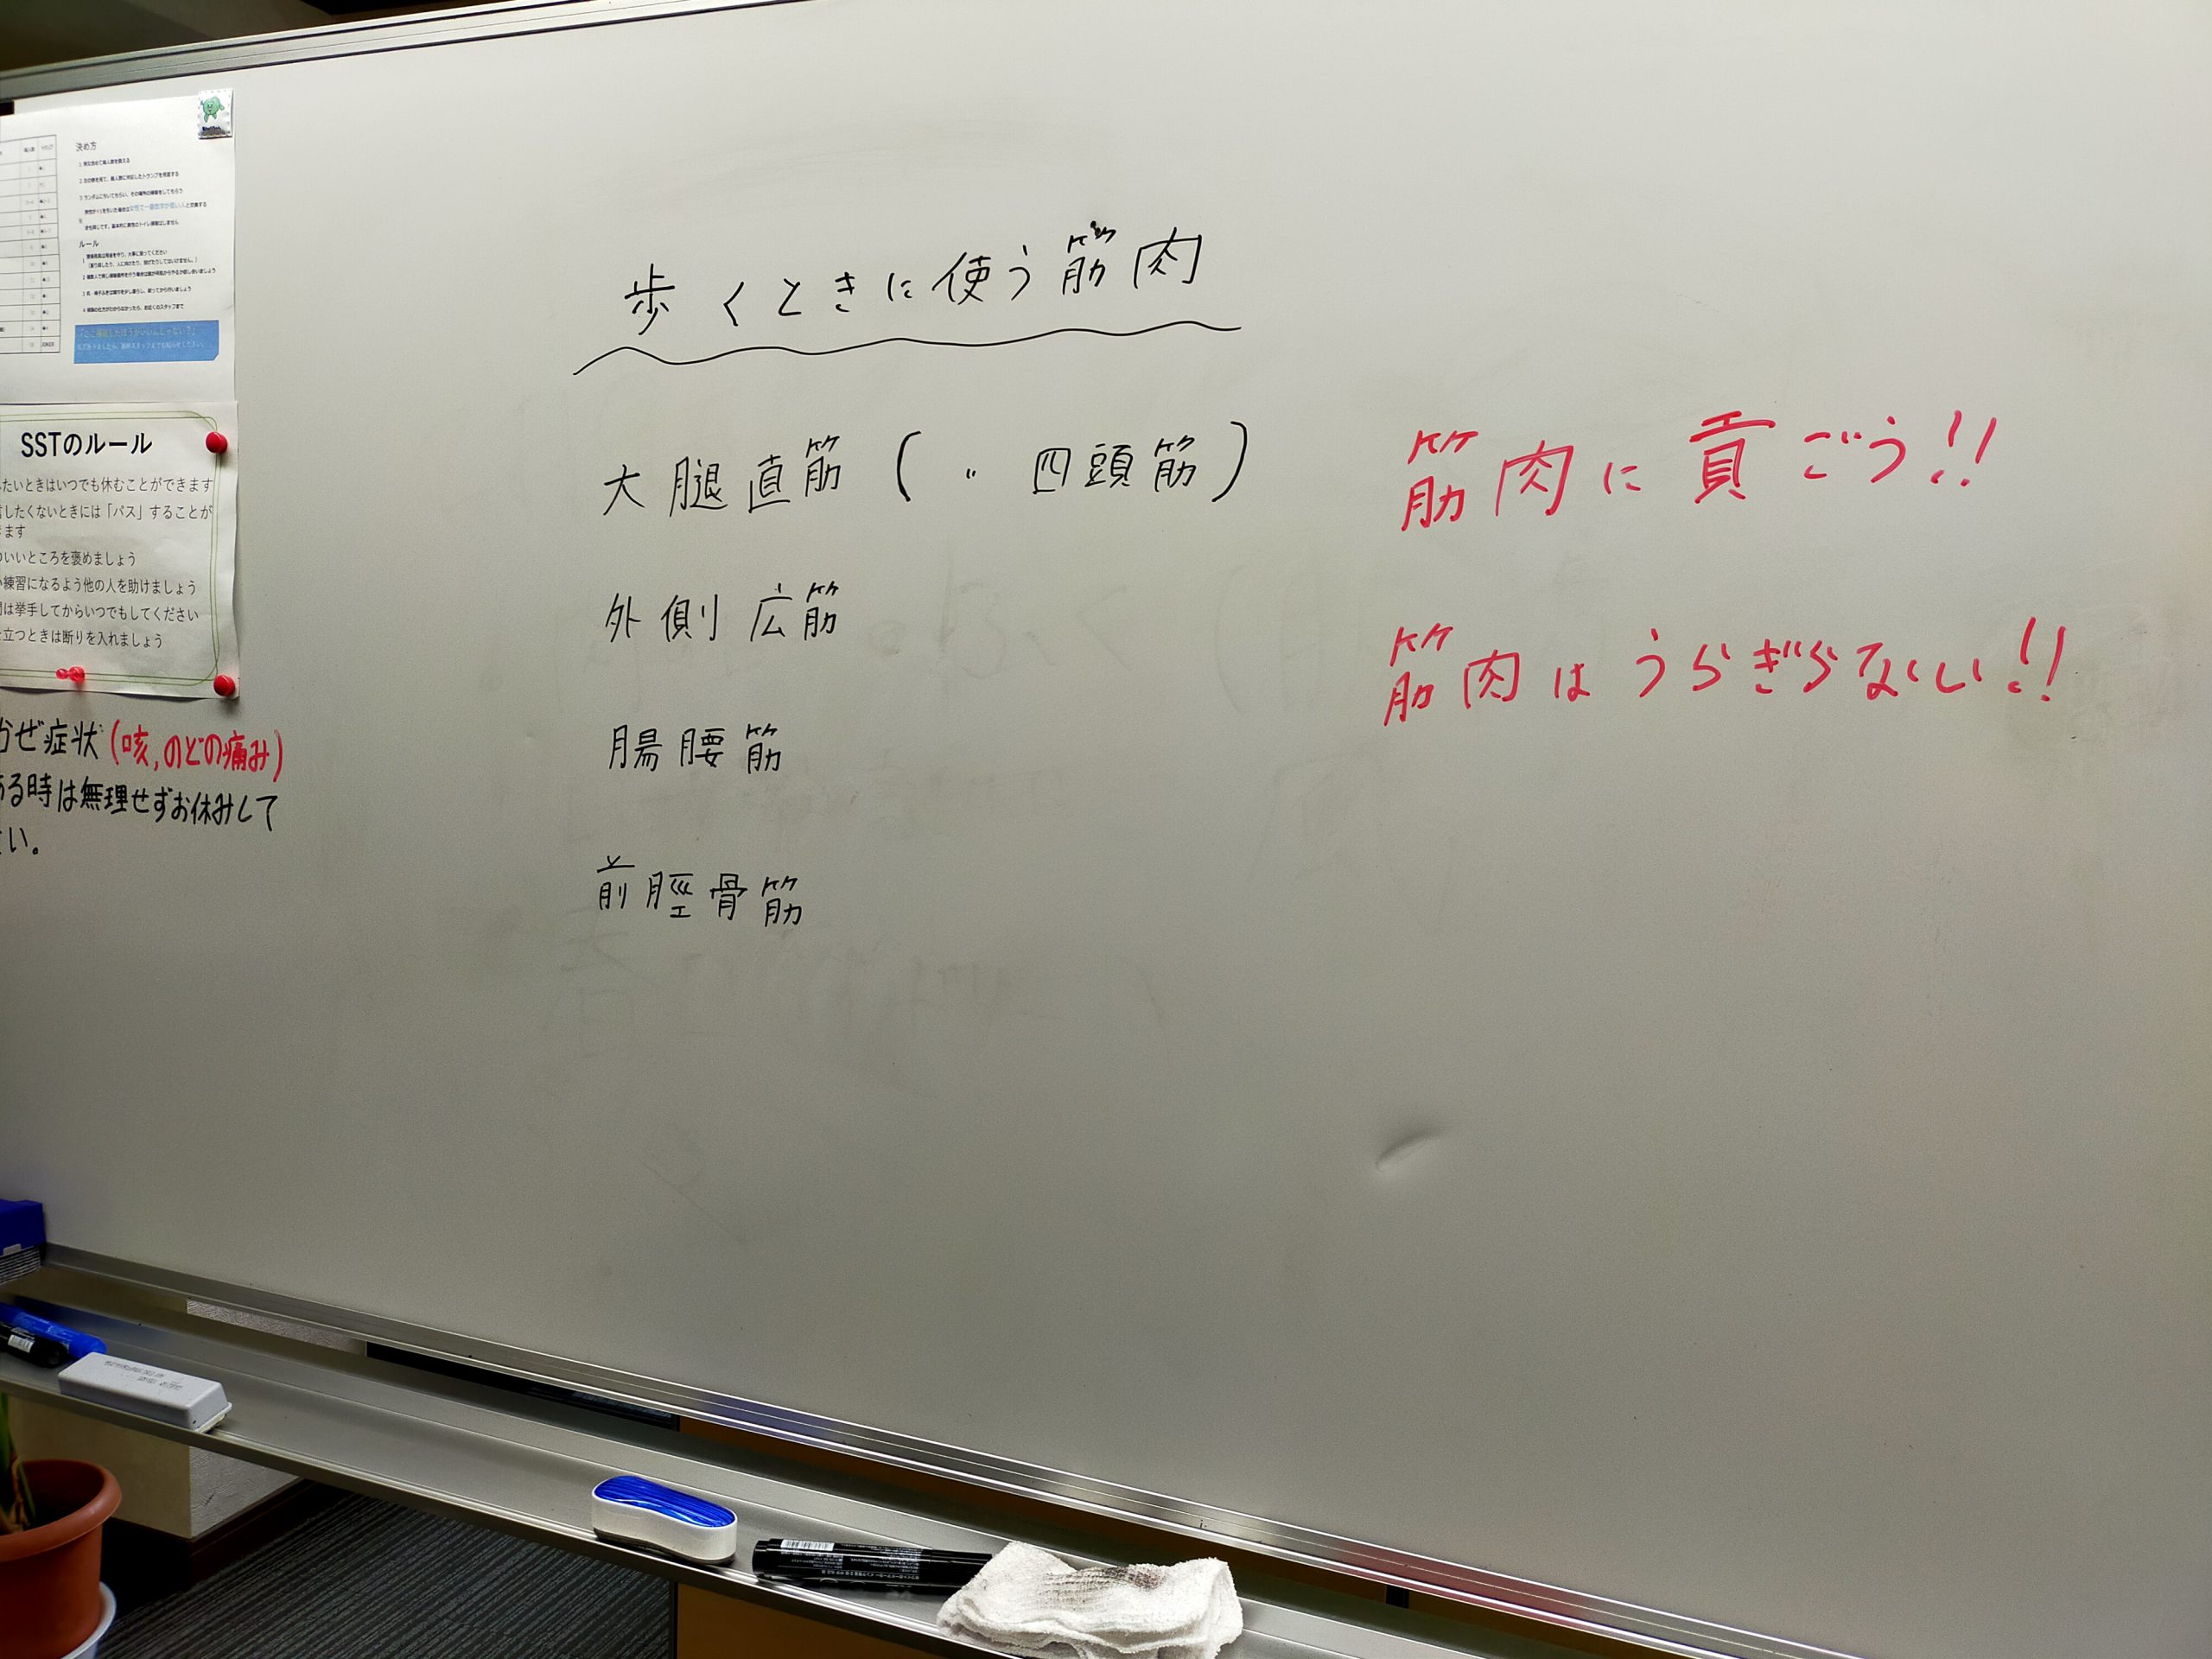 決め方
ルール
SSTのルール
たいときはいつでも休むことができます
したくないときには「パス」することが
ます
いいところを褒めましょう
練習になるよう他の人を助けましょう
は挙手してからいつでもしてください
立つときは断りを入れましょう
かぜ症状(咳,のどの痛み)
ある時は無理せずお休みして
さい。
歩くときに使う筋肉
大腿直筋(〃四頭筋)
外側広筋
腸腰筋
前脛骨筋
筋肉に貢ごう!!
筋肉はうらぎらない!!